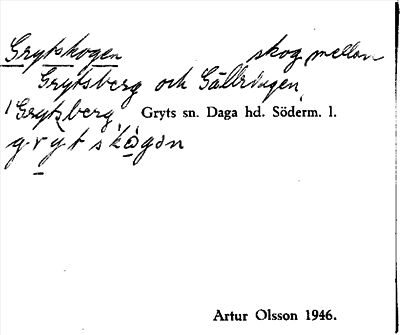 Grytskogen skog mellan
Grytsberg och Gällringen,
1 Grytsberg, Gryts sn. Daga hd. Söderm. l.
grytskogən
Artur Olsson 1946.